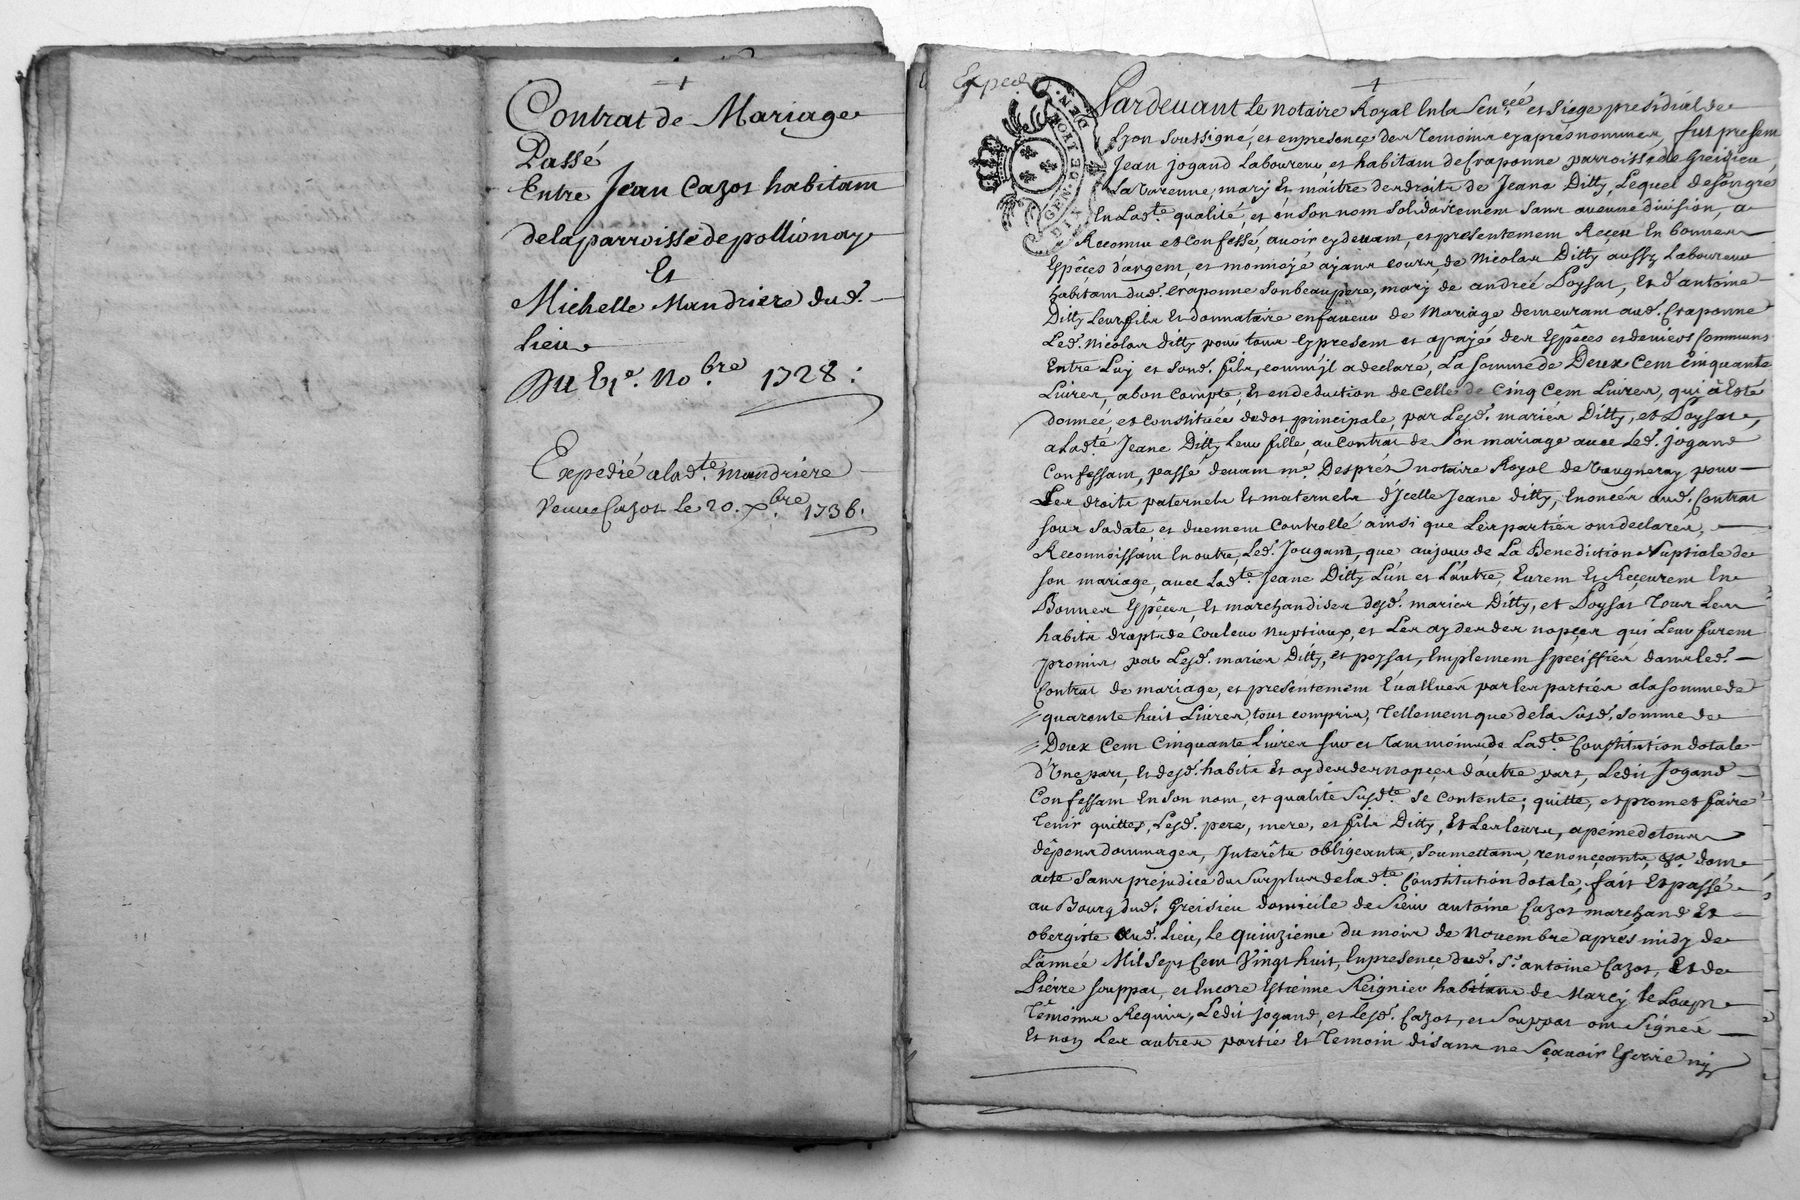 Contrat de Mariage
Passé
Entre Jean Cazot habitant
de la parroisse de pollionay
Et
Michelle Mandriere dud.
Lieu
Du No.bre 1728 :
Expedié a lad.te mandriere
Veuve Cazot le 20. x.bre 1736.
Exped
GEN. DE LYON
DIX DEN.
Pardevant le notaire Royal en la Sen.cée et siege presidial de
Lyon soussigné, et en presence des temoins cyaprés nommés, fut present
Jean jogand laboureur et habitant de Craponne parroisse de Greisieu
La Varenne, mary et maitre des droits de Jeane Ditty, Lequel de son gré
En lad.te qualité, et en son nom solidairement sans aucune division, a
Reconnu et confessé, avoir cy devant, et presentement Reçeu en bonnes
Espêces d'argent, et monnoyé ayans cours, de Nicolas Ditty aussy Laboureur
habitant dud. Craponne son beaupere, mary de andrée Poysat, et d'antoine
Ditty leur fils et donnataire en faveur de Mariage demeurant aud. Craponne
Led. Nicolas Ditty pour tous cy present et a payé des Espêces et deniers communs
Entre Luy et sond. fils, comm'jl a declaré, La somme de Deux cent cinquante
Livres, a bon compte, et en deduction de celle de cinq cent Livres, qui à Esté
donnée, et constituée de dot principale, par lesd. mariés Ditty, et Poysat,
a lad.te Jeane Ditty leur fille, au contrat de son mariage avec led. jogand
Confessant, passé devant m.e Desprês notaire Royal de Vaugneray pour
Les droits paternels et maternels d'Jcelle Jeane ditty, Enoncés aud. Contrat
sous sa date, et duement Controllé ainsi que les parties ont declarés,
Reconnoissant en outre, led. Jougand, que au jour de La Benediction Nuptiale de
son mariage, avec lad.te Jeane Ditty L'un et L'autre, Eurent et Reçeurent En
Bonnes Espêces, et marchandises desd. mariés Ditty, et Poysat tous les
habits drapts de Couleur nuptiaux, et les aydes des nopçes qui leur furent
promis par lesd. mariés Ditty, et poysat, Emplement speciffiés dans led.
Contrat de mariage, et presentement Evallués par les parties a la somme de
quarante huit Livres, tout compris, tellement que de la susd. somme de
Deux Cent Cinquante Livres sur et tant moins de lad.te Constitution dotale
d'Une part, et desd. habits et aydes des nopçes d'autre part, Ledit Jogand
Confessant en son nom, et qualité susd.te se contente, quitte, et promet faire
tenir quittes, Lesd. pere, mere, et fils Ditty, et Les leurs, a peine de tous
dêpens dommages, Interêts obligeants, soumettans, renonçeants, &a dont
acte sans prejudice du surplus de lad.te Constitution dotale, fait et passé
au Bourg dud. Greisieu domicile de sieur antoine Cazot marchand et
obergiste dud. Lieu, le quinzieme du mois de Novembre aprés midy de
L'année Mil Sept Cent Vingt huit, En presence dud. S.r antoine Cazot, et de
Piérre souppat, et encore Estienne Reignier habitans de Marcy le Loup
têmoins Requis, Ledit jogand, et lesd. Cazot, et Souppat ont signés
Et non Les autres partie et temoin disans ne sçavoir Escrire ny